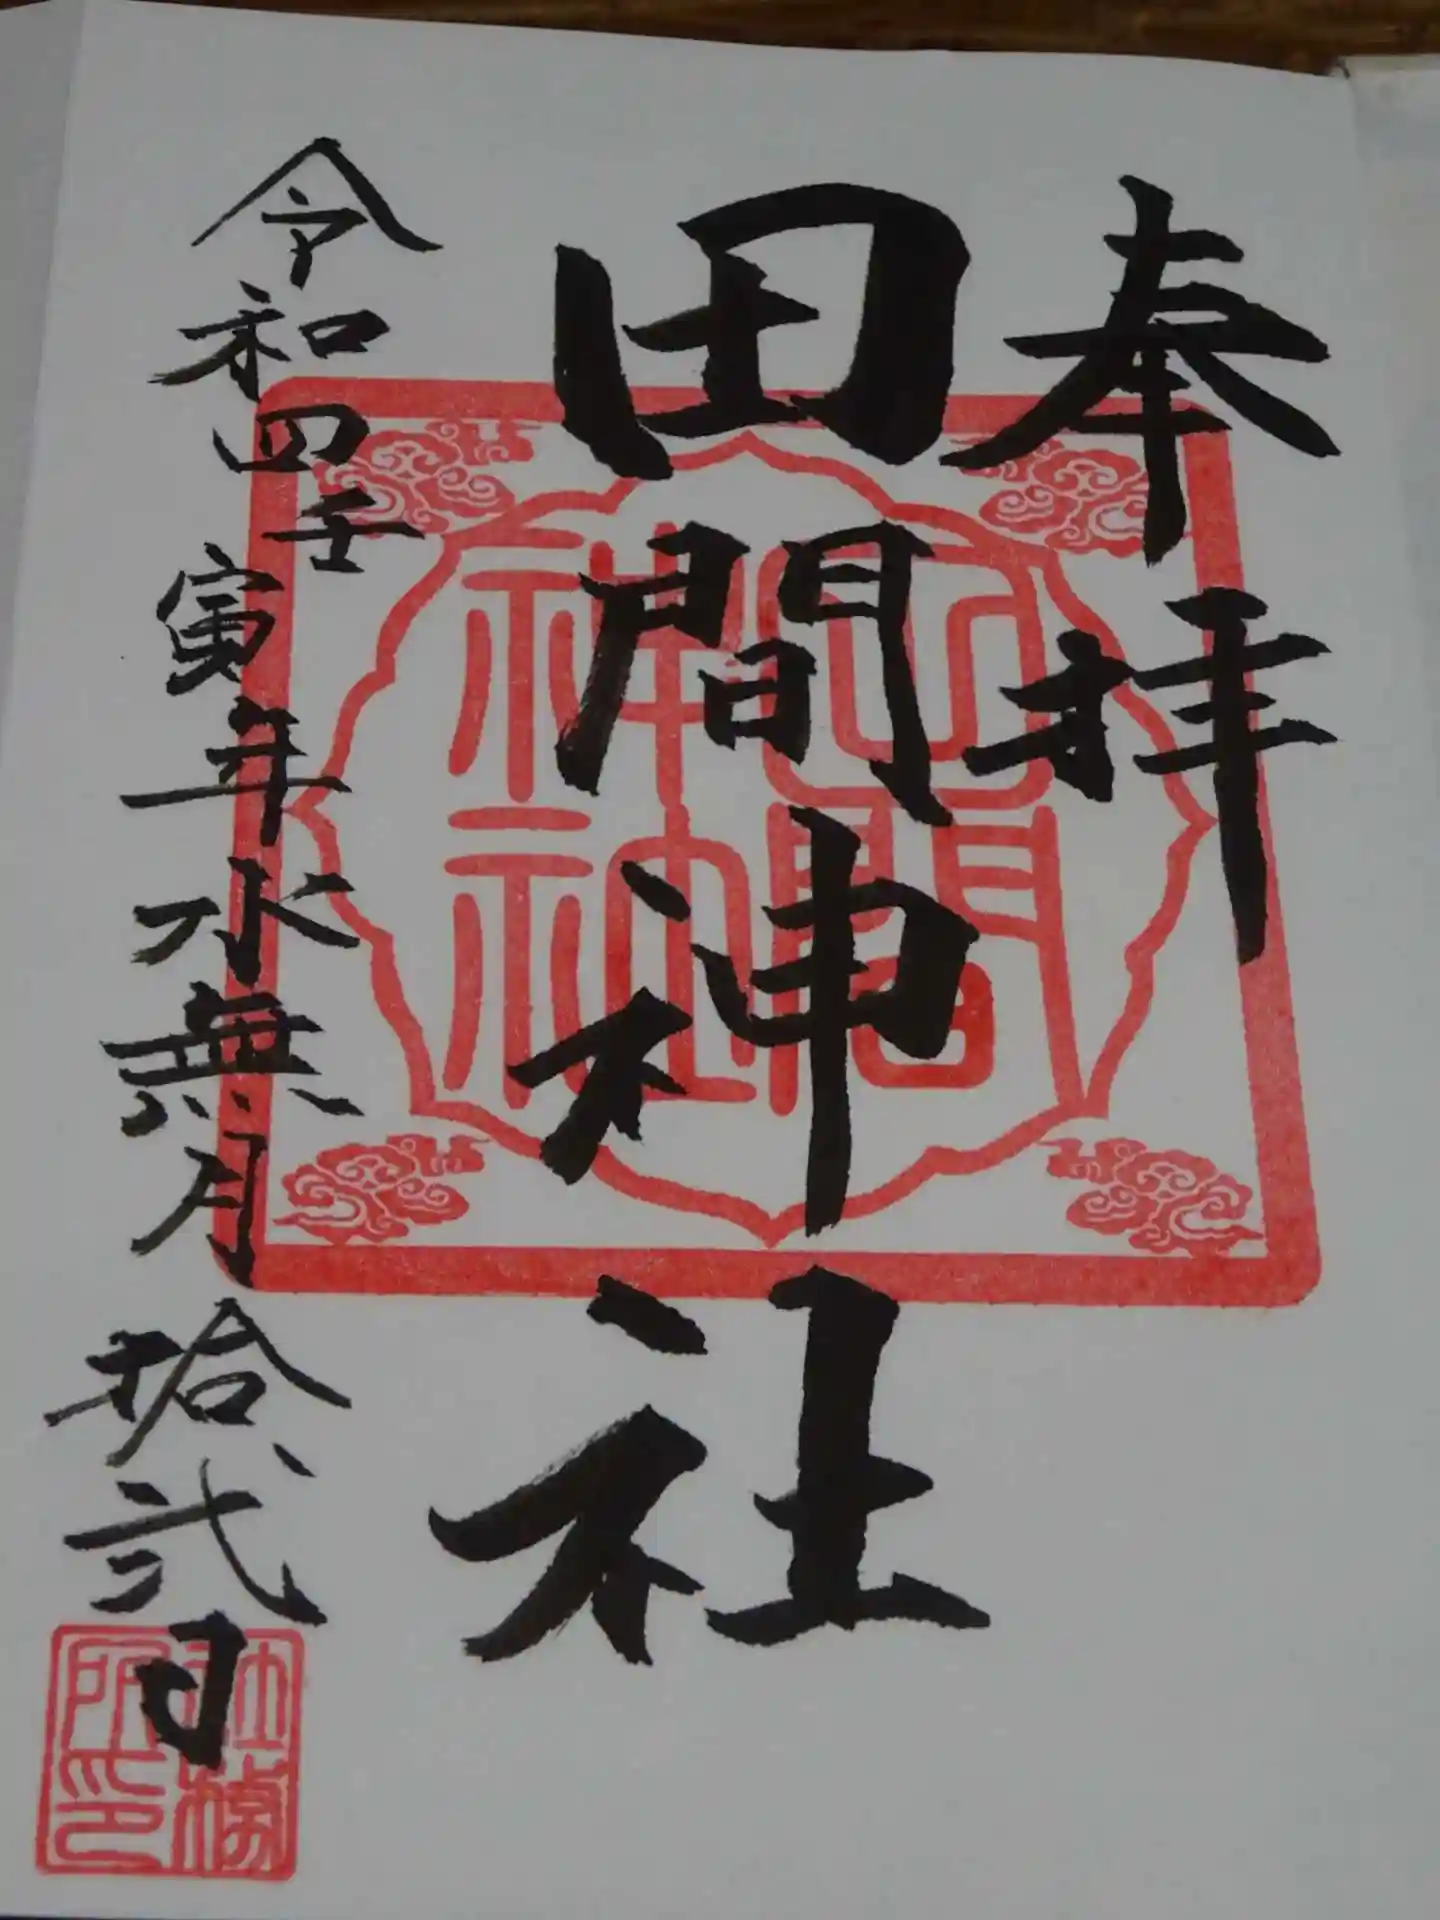 奉拝
田間神社
令和四壬寅年水無月拾弐日
田間
神社
社務
所印